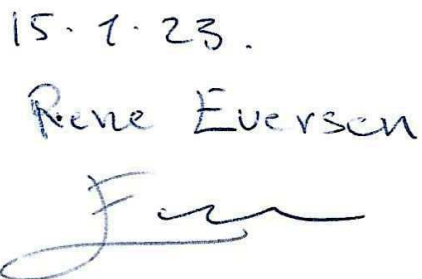 15.1.23.
Rene Eversen